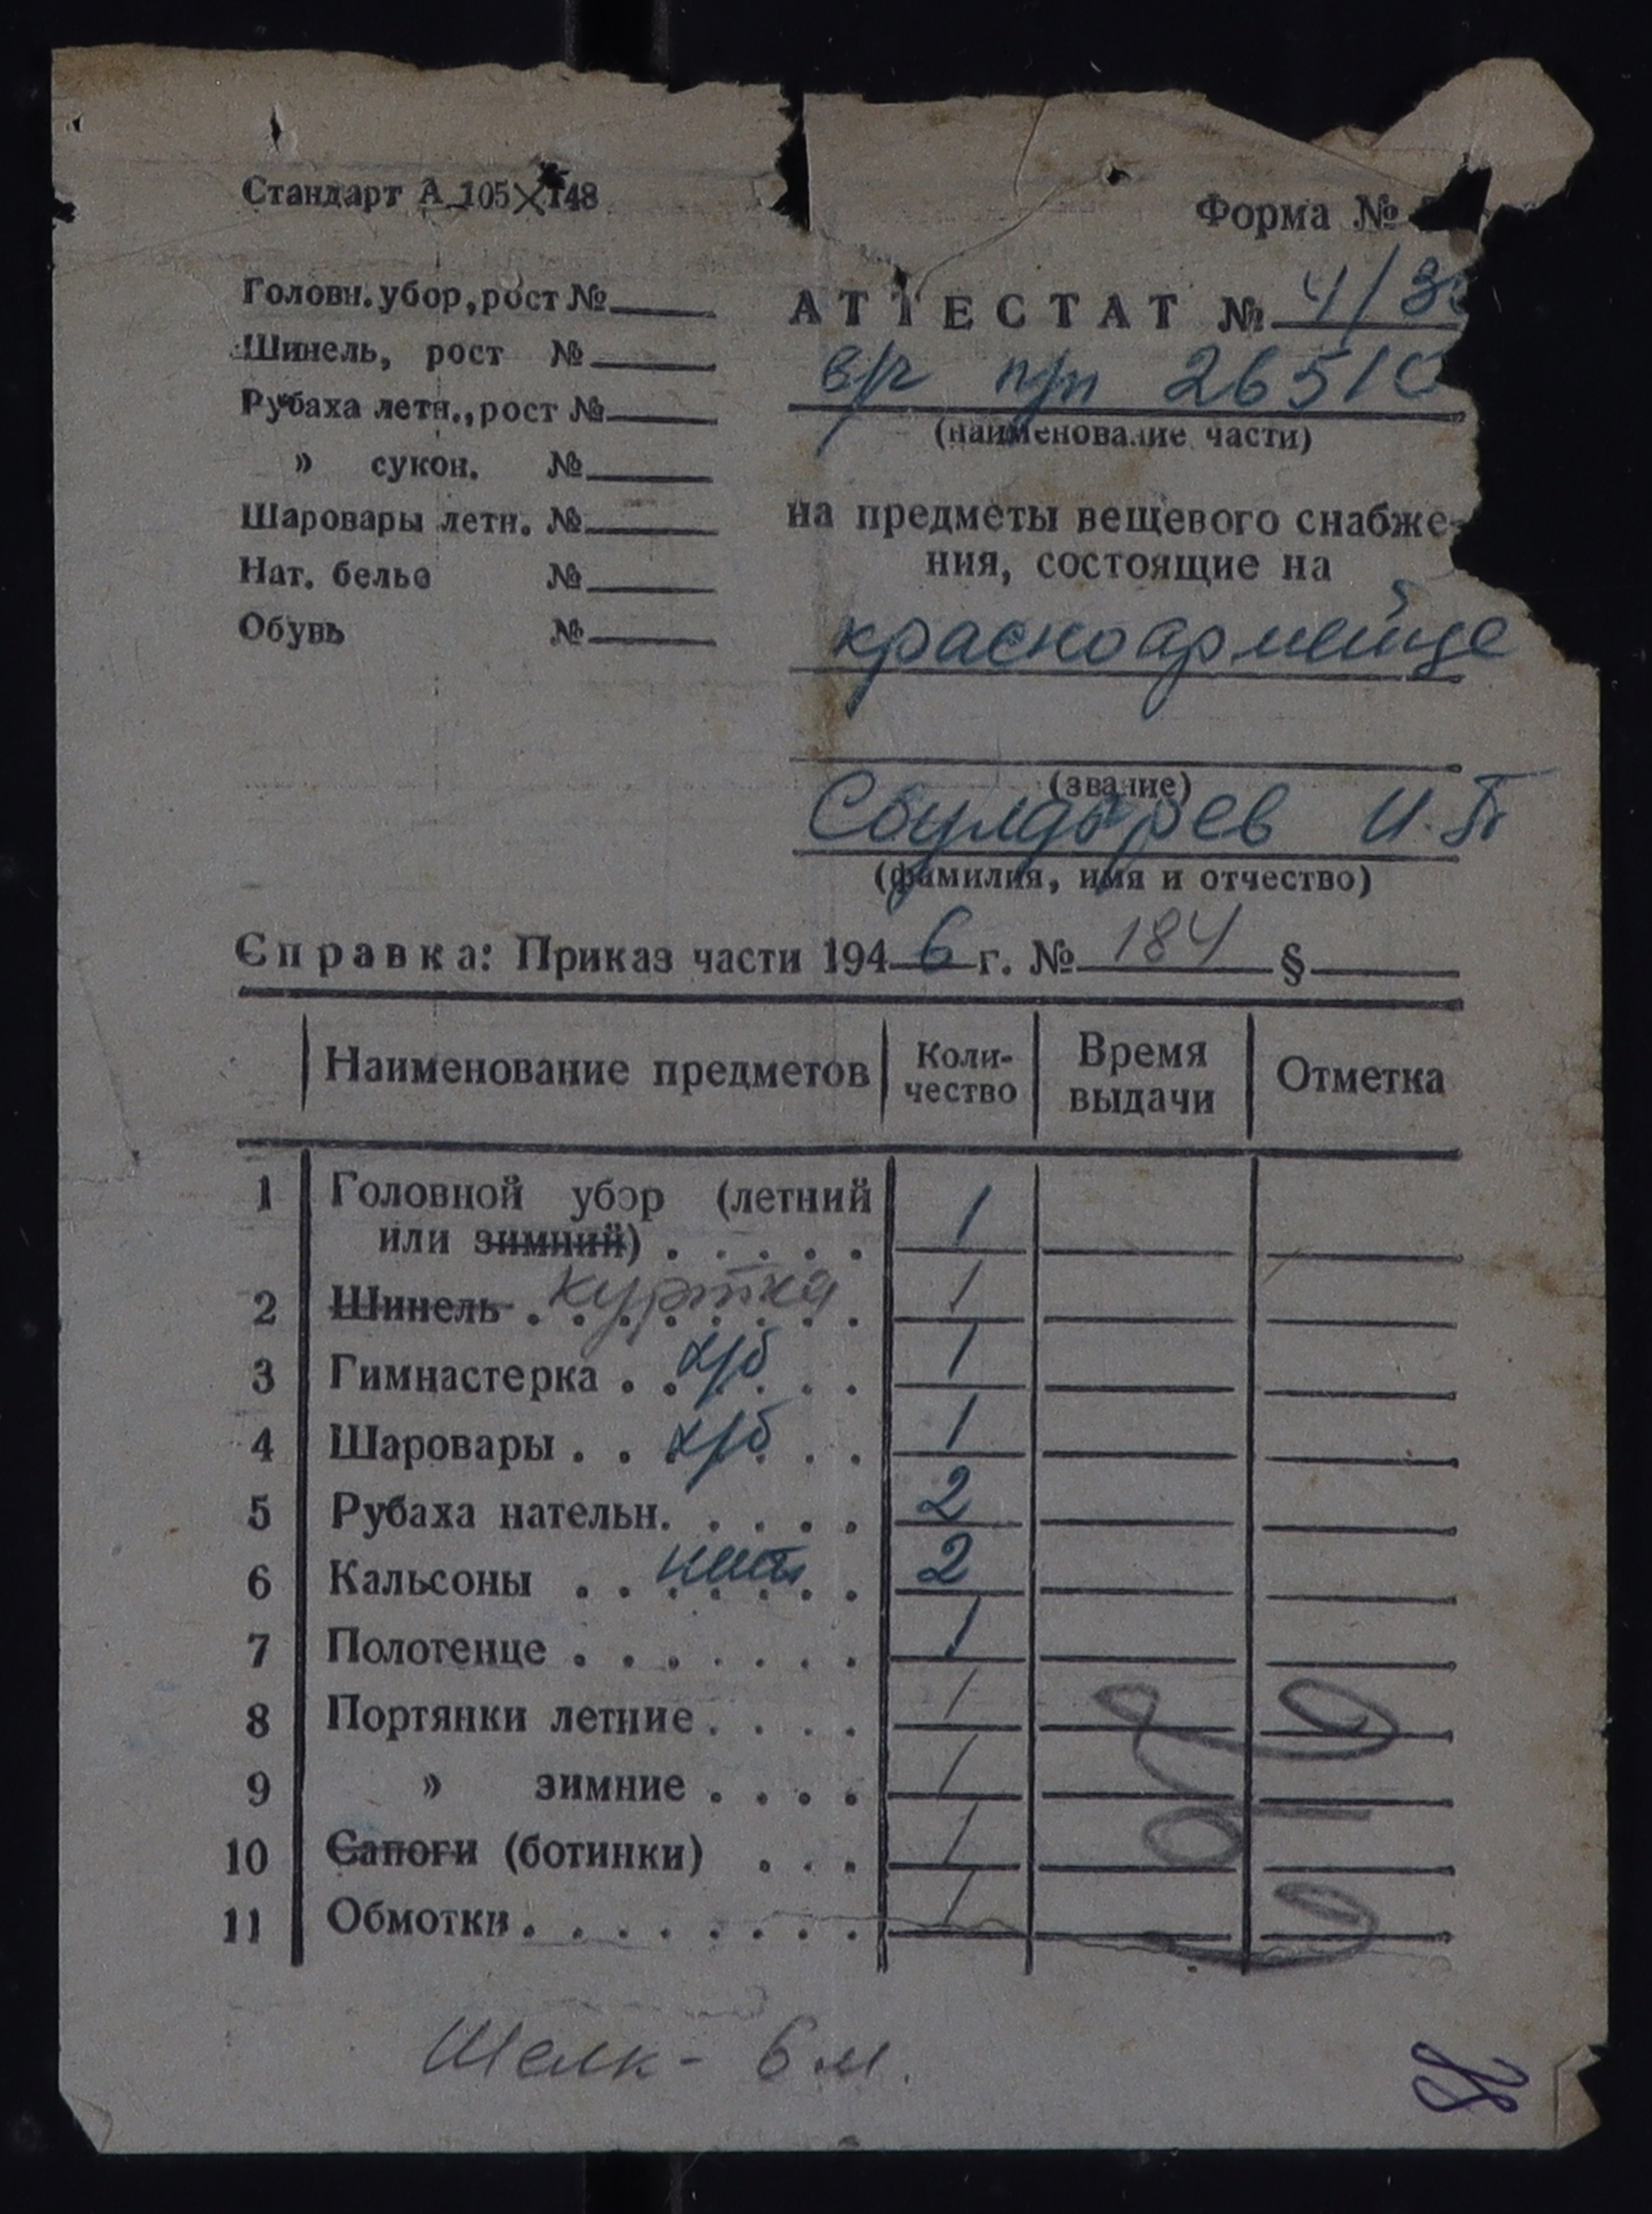 Стандарт А 105×148
Форма №
Головн. убор, рост №
Шинель, рост №
Рубаха летн., рост №
» сукон. №
Шаровары летн. №
Нат. белье №
Обувь №
АТТЕСТАТ № 4/3
в/г п/п 26510
(наименование части)
на предметы вещевого снабже-
ния, состоящие на
красноармейце
(звание)
Сбулдырев И. П
(фамилия, имя и отчество)
Справка: Приказ части 1946 г. № 184 §
Наименование предметов Коли-чество Время выдачи Отметка
1 Головной убор (летний
или зимний) . . . . . 1
2 Шинель . куртка 1
3 Гимнастерка . х/б . . 1
4 Шаровары . . х/б . . 1
5 Рубаха нательн. . . . . 2
6 Кальсоны . . . . . . 2
7 Полотенце . . . . . . . 1
8 Портянки летние . . . . 1
9 » зимние . . . . 1
10 Сапоги (ботинки) . . . 1
11 Обмотки . . . . . . . . 1
Шелк - 6 м.